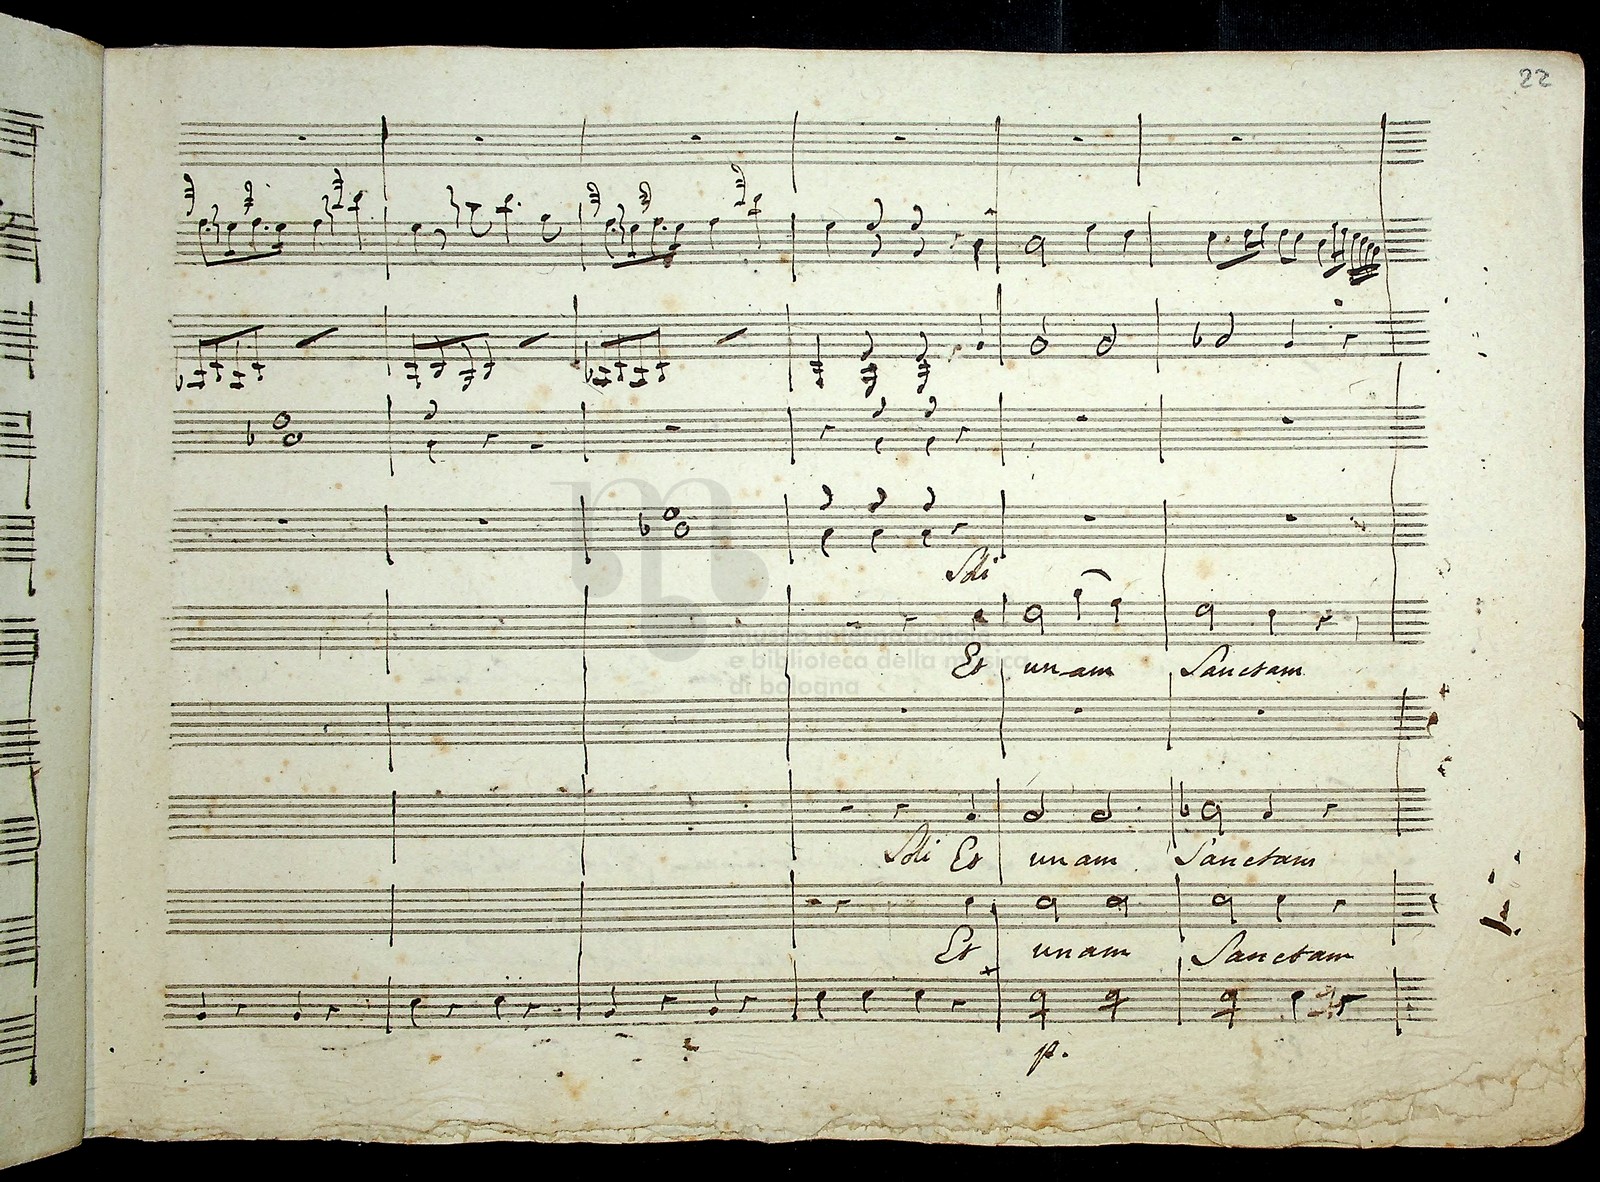 22
Soli
Et unam Sanctam
museo internazionale
e biblioteca della musica
di bologna
Soli Et unam Sanctam
Et unam Sanctam
p.